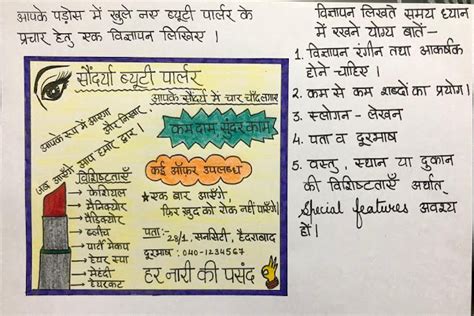 आपके पड़ोस में खुले नए ब्यूटी पार्लर के
प्रचार हेतु एक विज्ञापन लिखिए ।
सौंदर्या ब्यूटी पार्लर
आपके सौंदर्य में चार चाँद लगाए
आपके रूप में आएगा
और निखार
जब आएँगी आप हमारे द्वार ।
कम दाम, सुंदर काम
कई ऑफर उपलब्ध
विशिष्टताएँ
फेशियल
मैनिक्योर
पैडिक्योर
ब्लीच
पार्टी मेकप
हेयर स्पा
मेहंदी
हेयरकट
★ एक बार आएँगी,
फिर खुद को रोक नहीं पाएँगी।
पता:- 28/1, सनसिटी, हैदराबाद
दूरभाष : 040-1234567
हर नारी की पसंद
विज्ञापन लिखते समय ध्यान
में रखने योग्य बातें-
1. विज्ञापन रंगीन तथा आकर्षक
होने चाहिए ।
2. कम से कम शब्दों का प्रयोग।
3. स्लोगन - लेखन
4. पता व दूरभाष
5. वस्तु, स्थान या दुकान
की विशिष्टताएँ अर्थात्
Special features अवश्य
हो।